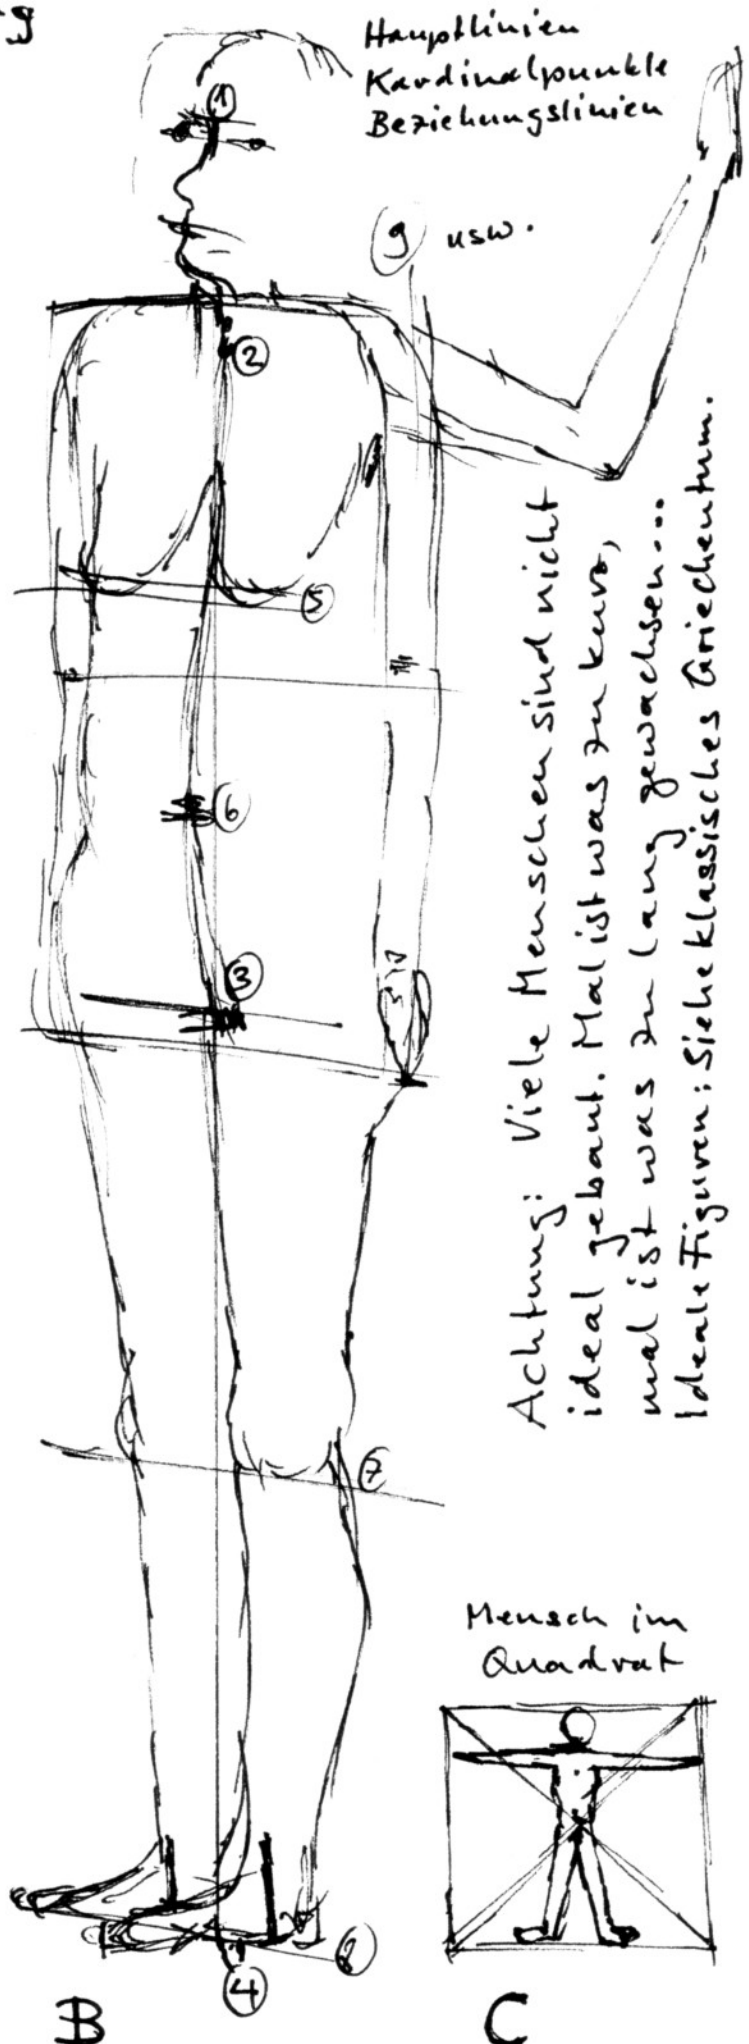 g
Hauptlinien
Kardinalpunkte
Beziehungslinien
1
9 usw.
2
5
6
3
7
8
4
Achtung: Viele Menschen sind nicht
ideal gebaut. Mal ist was zu kurz,
mal ist was zu lang gewachsen...
Ideale Figuren: Siehe klassisches Griechentum.
Mensch im
Quadrat
B
C